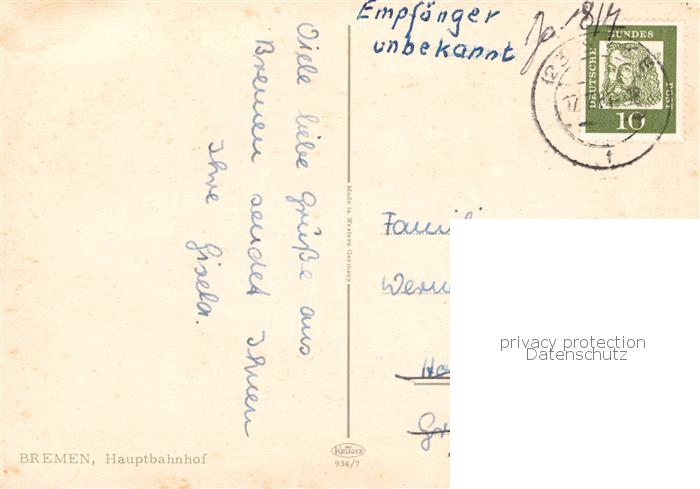 Empfänger
unbekannt
Ja. 18/4
DEUTSCHE BUNDES POST
10
Viele liebe Grüße aus
Bremen sendet Ihnen
Ihre Gisela.
Made in Western Germany
Famili
Wern
Ha
Gr
privacy protection
Datenschutz
BREMEN, Hauptbahnhof
KRÜGER
934/7